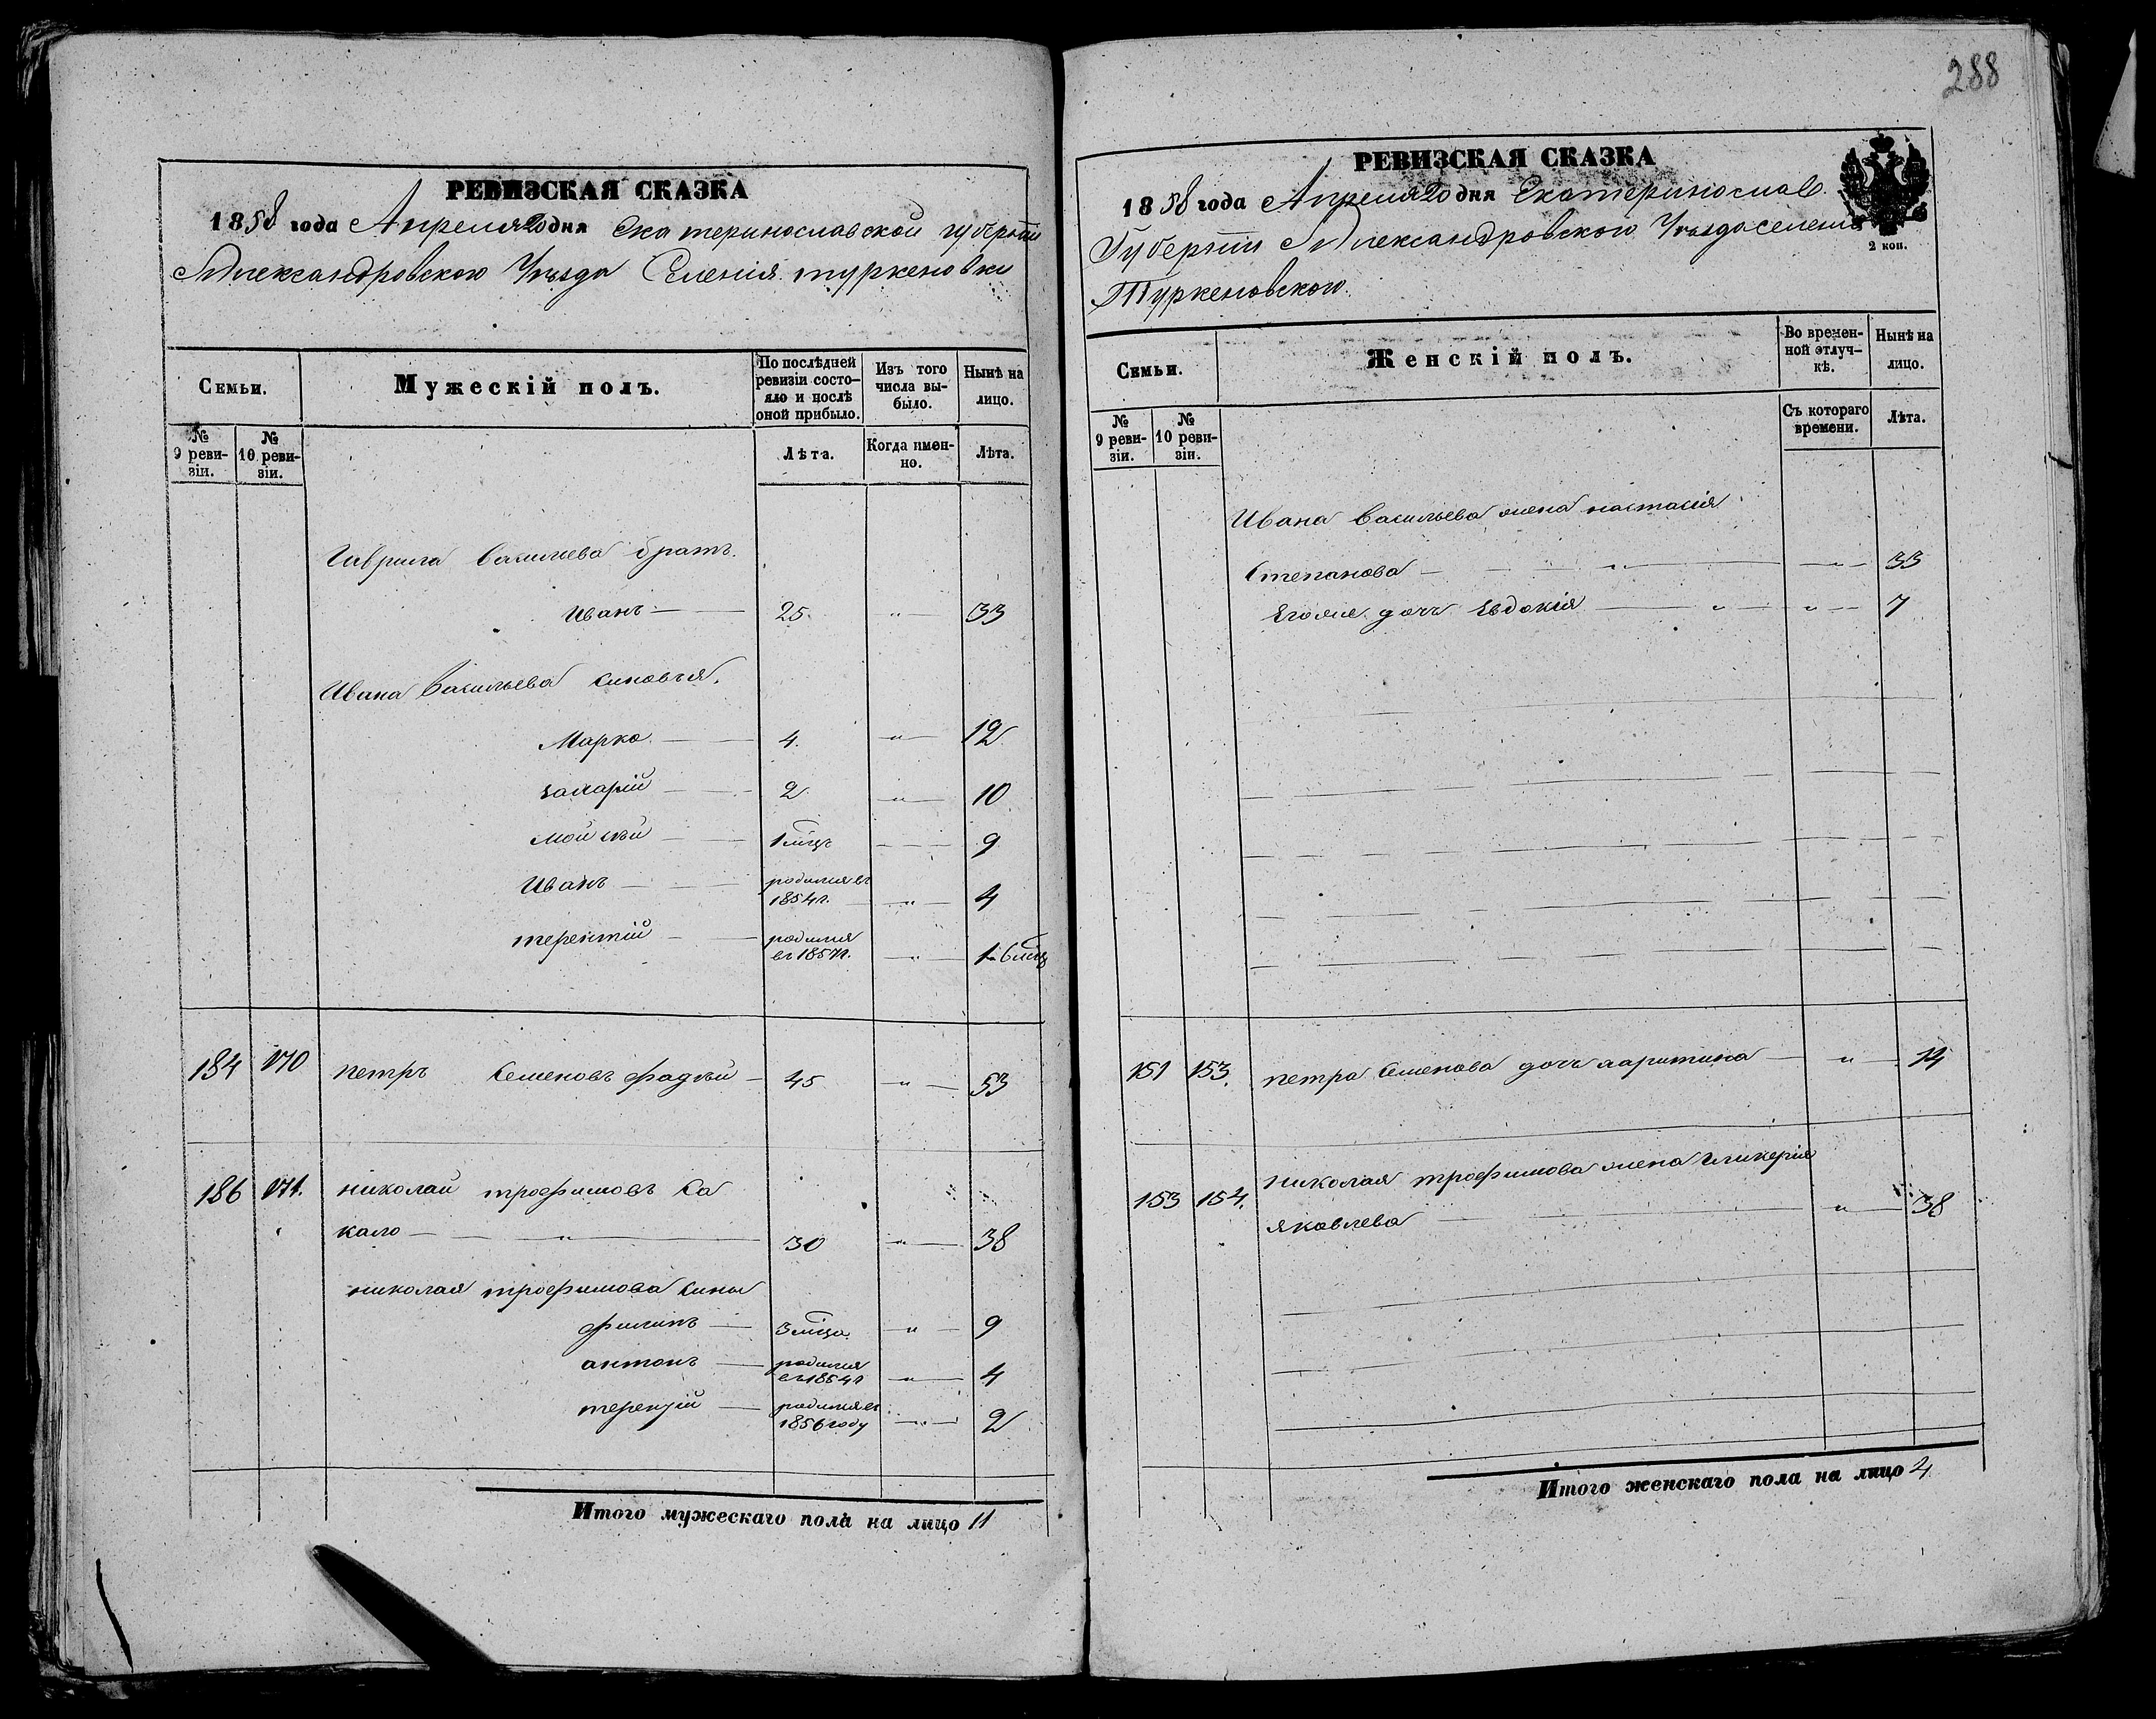 288
РЕВИЗСКАЯ СКАЗКА
1858 года Апреля 20 дня Екатеринославской губернии
Александровского Уезда Селения туркеновки
Семьи.
Мужескій полъ.
По послѣдней ревизіи состо-яло и послѣ оной прибыло.
Изъ того числа вы-было.
Нынѣ на лицо.
№ 9 реви-зіи.
№ 10 реви-зіи.
Лѣта.
Когда имен-но.
Лѣта.
Гаврила Васильева братъ
Иванъ — 25. " — 33
Ивана Васильева синовъя.
Марко — 4. " — 12
захарій — 2 " — 10
мойсѣй — 1 мѣцъ — 9
Иванъ — родился въ
1854 г. — " — 4
терентій — родился
въ 1857 г. — " — 1 6 мѣц
184 170 петръ Семеновъ фадѣй — 45 " — 53
186 171. николай трофимовъ Са
кало — " — 30 " — 38
николая трофимова сины
филипъ — 3 мѣца — " — 9
антонъ — родился
въ 1854 г — " — 4
терентій — родился въ
1856 году — " — 2
Итого мужескаго пола на лицо 11
РЕВИЗСКАЯ СКАЗКА
1858 года Апреля 20 дня Екатеринослав.
Губернии Александровского Уезда селения
Туркеновского.
2 коп.
Семьи.
Женскій полъ.
Во времен-ной отлуч-кѣ.
Нынѣ на лицо.
№ 9 реви-зіи.
№ 10 реви-зіи.
Съ котораго времени.
Лѣта.
Ивана Васильева жена настасія
Степанова — " — " — 33
Егоже дочь Евдокія — " — " — 7
151 153. петра Семенова дочь харитина — " — 14
153 154. николая трофимова жена Гликерія
яковлева — " — 38
Итого женскаго пола на лицо 4